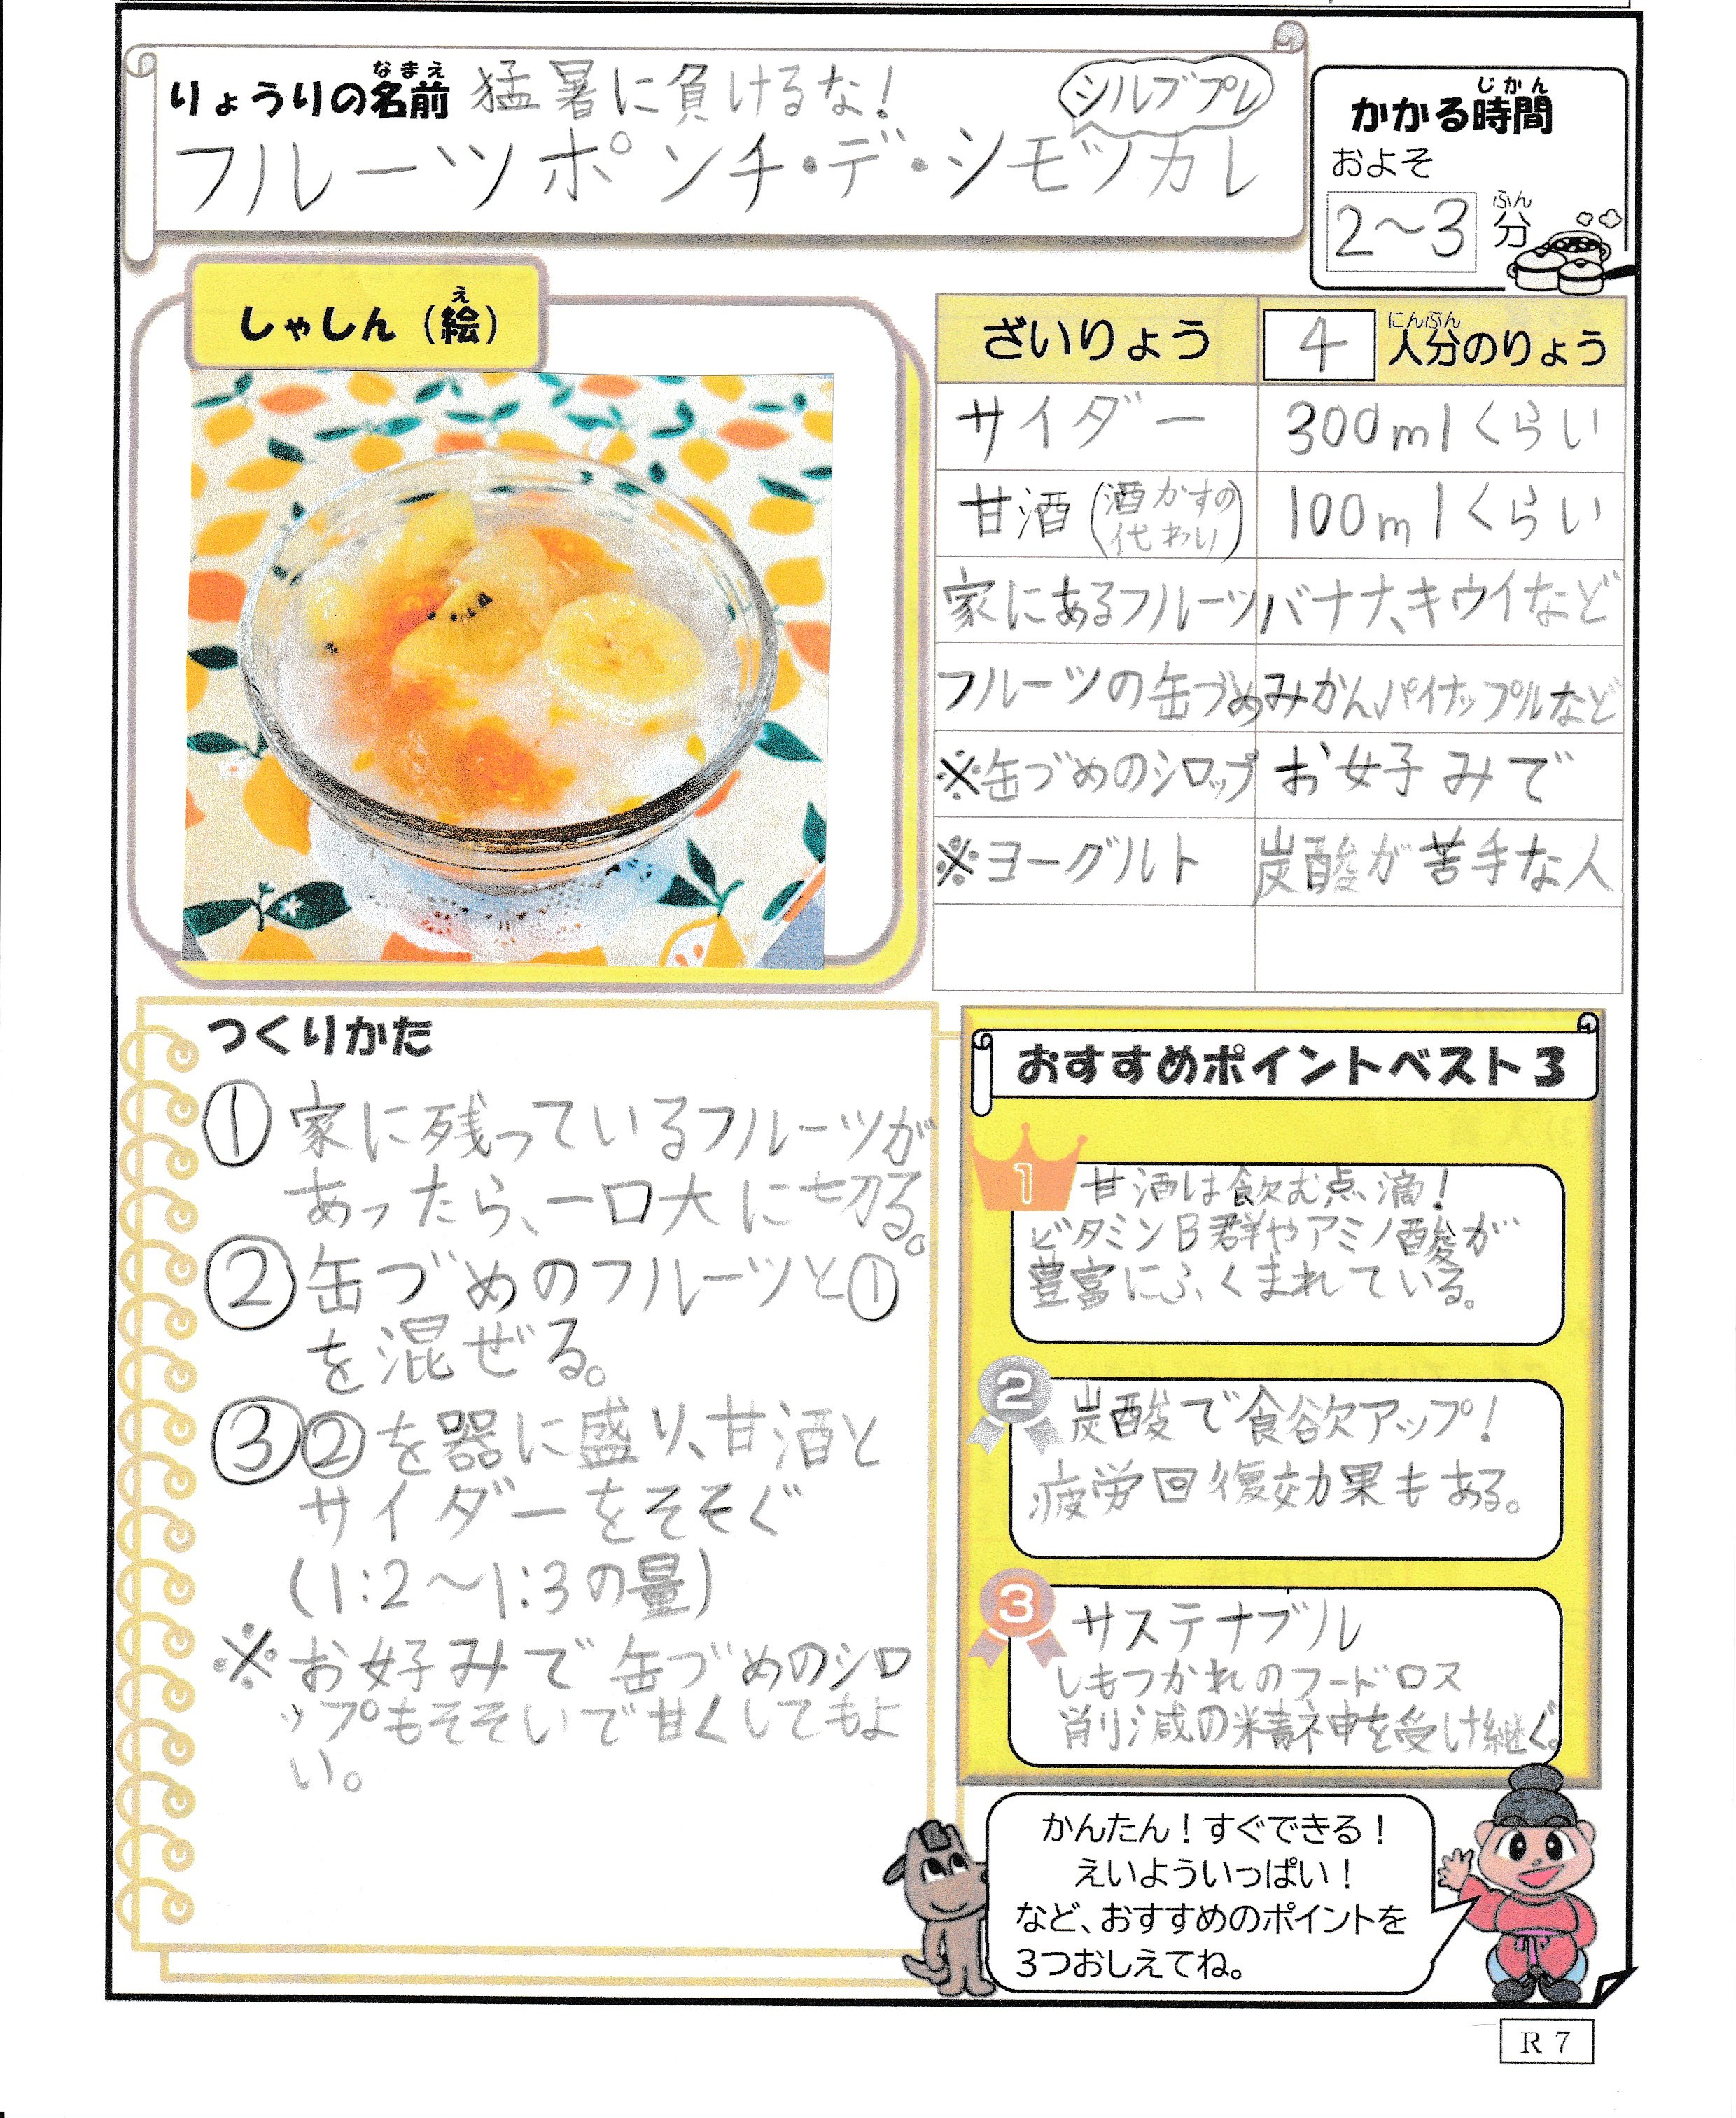 りょうりの名前 猛暑に負けるな!
なまえ
シルブプレ
フルーツポンチ・デ・シモツカレ
じかん
かかる時間
およそ
2〜3 分
ふん
しゃしん(絵)
え
ざいりょう 4 人分のりょう
にんぶん
サイダー 300mlくらい
甘酒(酒かすの代わり) 100mlくらい
家にあるフルーツ バナナ、キウイなど
フルーツの缶づめ みかん、パイナップルなど
※缶づめのシロップ お好みで
※ヨーグルト 炭酸が苦手な人
つくりかた
① 家に残っているフルーツが
あったら、一口大に切る。
② 缶づめのフルーツと①
を混ぜる。
③ ②を器に盛り、甘酒と
サイダーをそそぐ
(1:2〜1:3の量)
※お好みで缶づめのシロ
ップもそそいで甘くしてもよ
い。
おすすめポイントベスト3
1 甘酒は飲む点滴!
ビタミンB群やアミノ酸が
豊富にふくまれている。
2 炭酸で食欲アップ!
疲労回復効果もある。
3 サステナブル
しもつかれのフードロス
削減の精神を受け継ぐ。
かんたん!すぐできる!
えいよういっぱい!
など、おすすめのポイントを
3つおしえてね。
R7